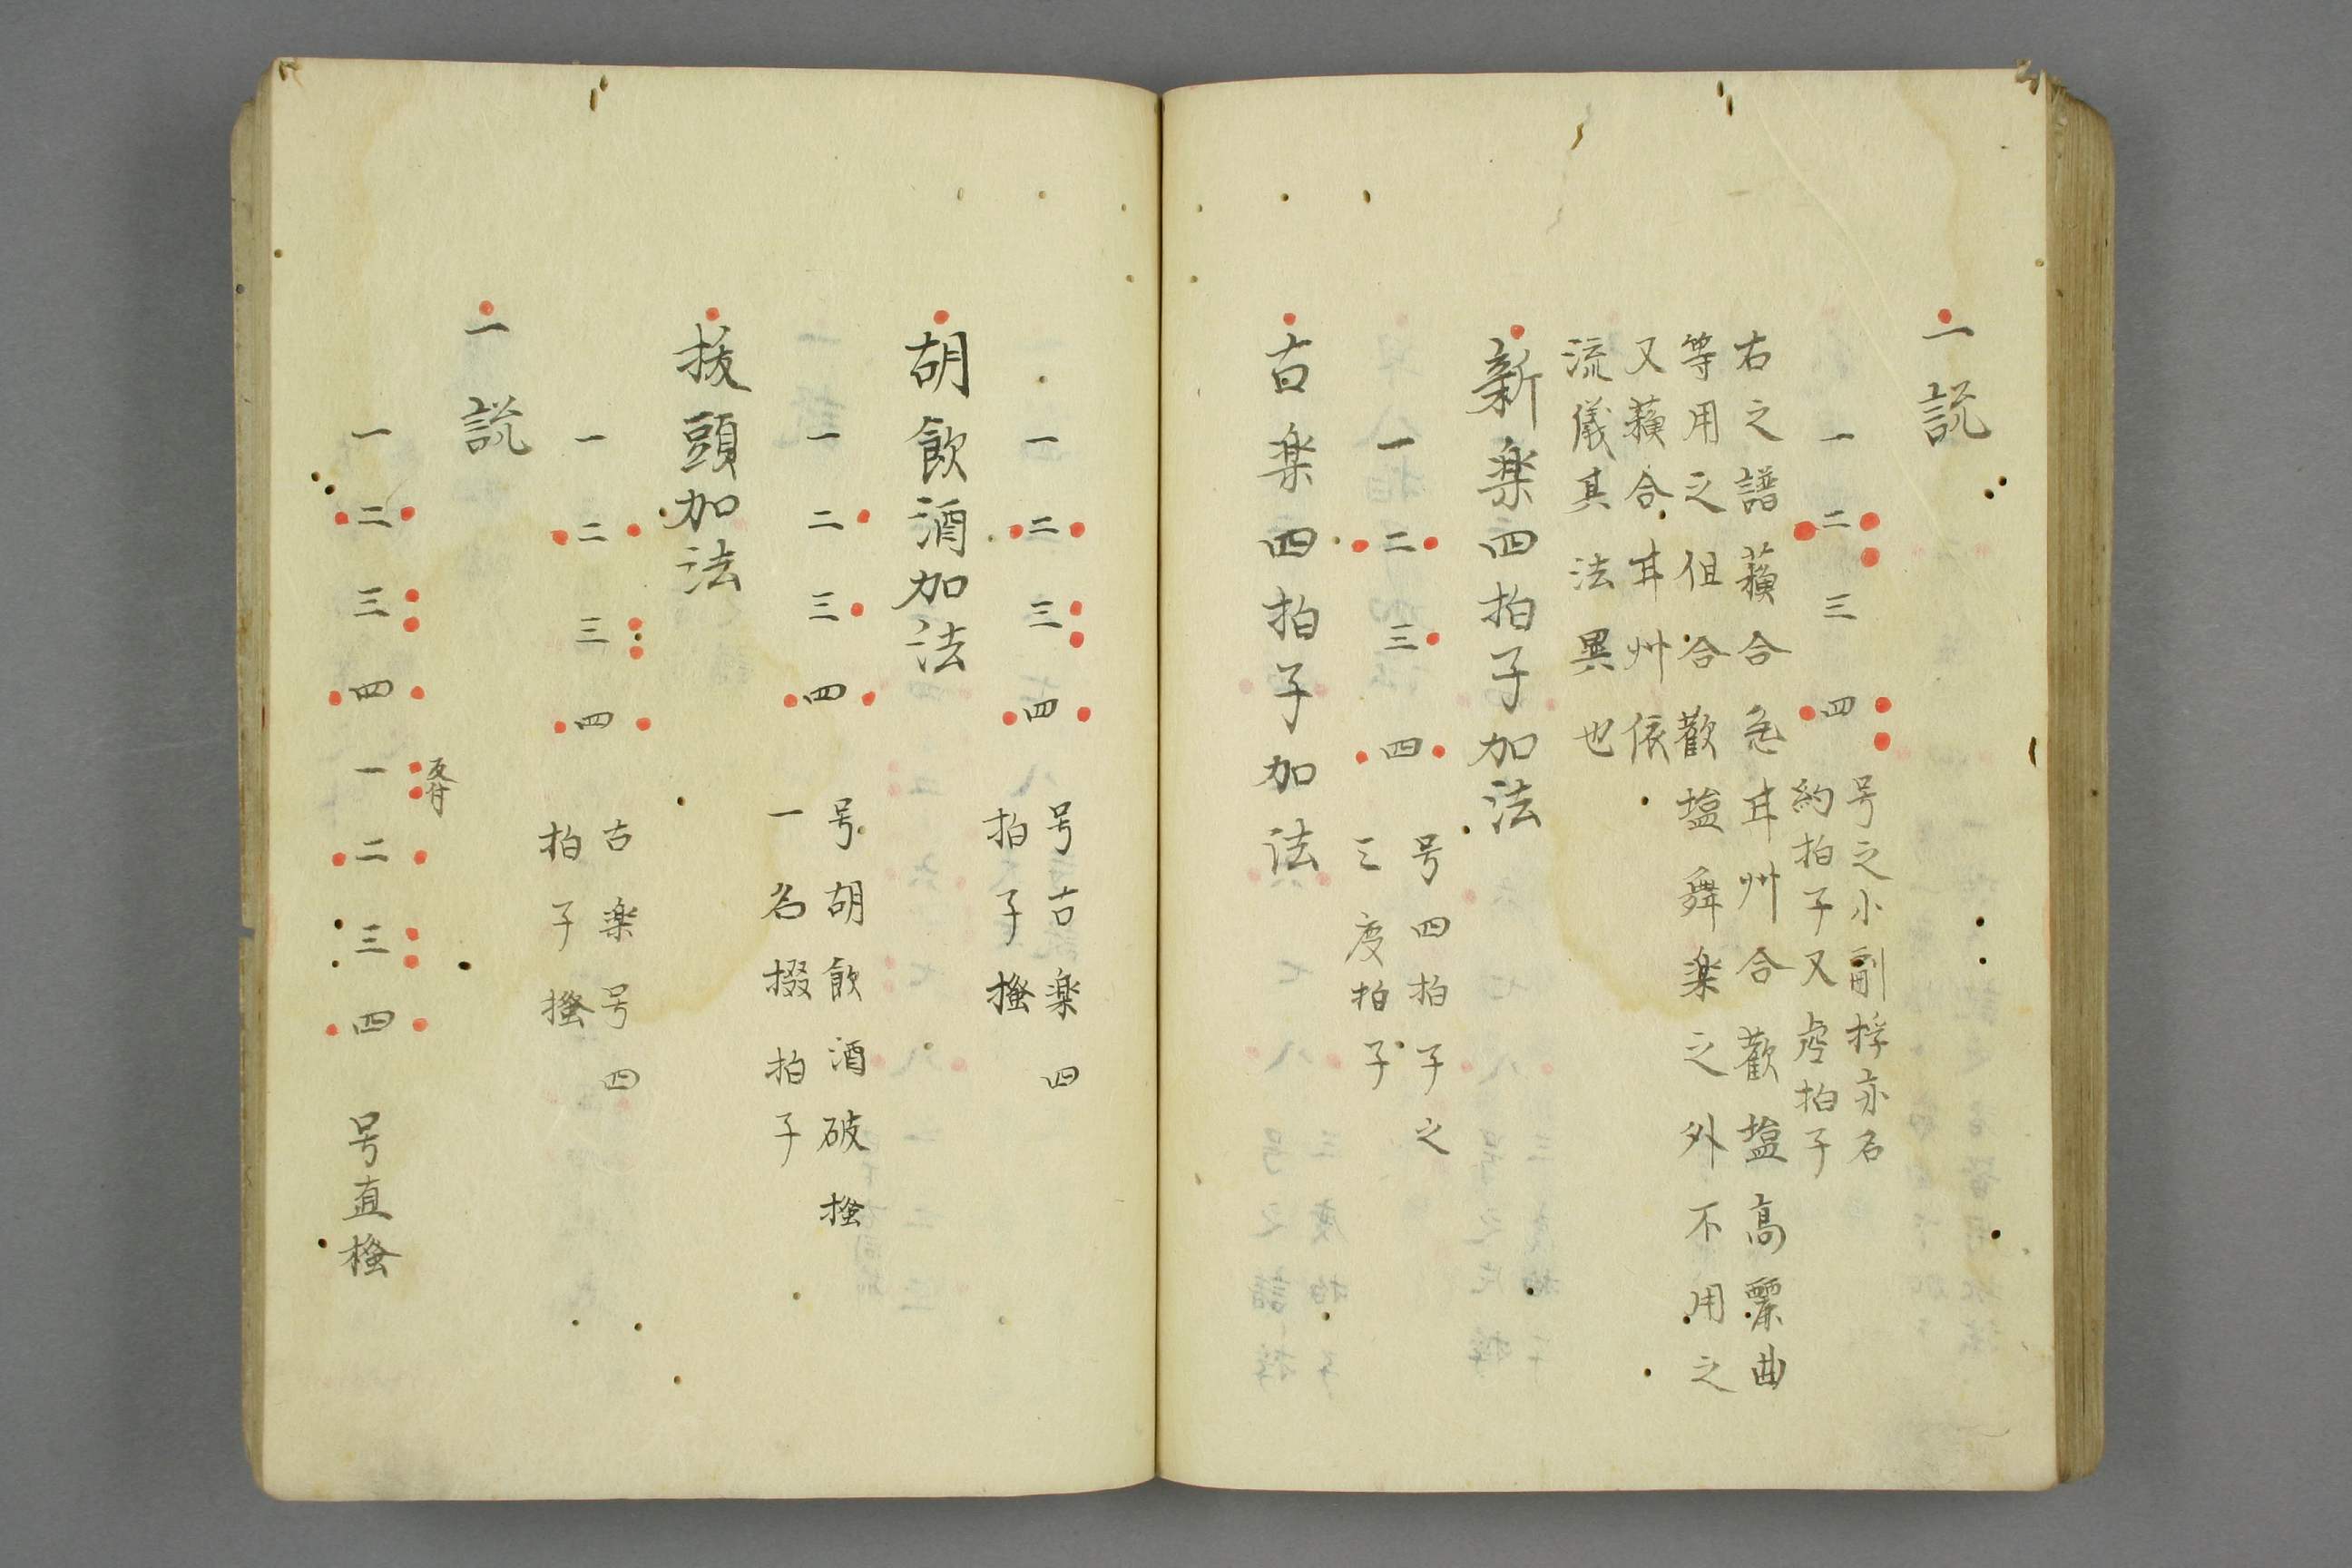 一説
一 二 三 四
号之小副桴亦名
約拍子又虚拍子
右之譜蘓合急廾卅合歡塩高麗曲
等用之但合歡塩舞楽之外不用之
又蘓合廾卅依
流儀其法異也
新楽四拍子加法
一 二 三 四
号四拍子之
三度拍子
古楽四拍子加法
一 二 三 四
号古楽四
拍子掻
胡飲酒加法
一 二 三 四
号胡飲酒破掻
一名掇拍子
抜頭加法
一 二 三 四
古楽号四
拍子掻
一説
一 二 三 四 一 二 三 四 号直掻